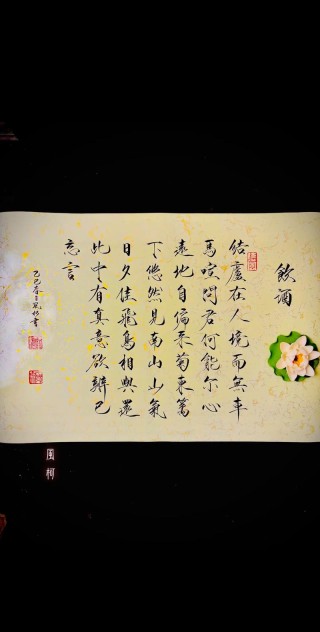 飲酒
結廬在人境而無車
馬喧問君何能尔心
遠地自偏采菊東篱
下悠然見南山山氣
日夕佳飛鳥相與還
此中有真意欲辨已
忘言
乙巳春
書
風柯